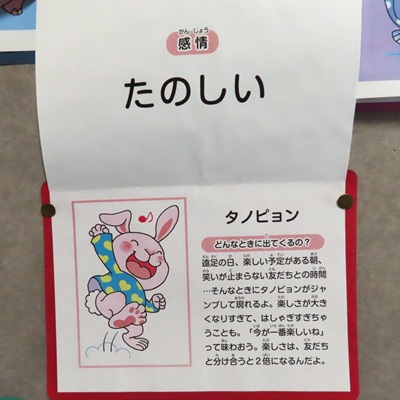 かん じょう
感情
たのしい
タノピョン
どんなときに出てくるの？
遠足の日、楽しい予定がある朝、
笑いが止まらない友だちとの時間
…そんなときにタノピョンがジャ
ンプして現れるよ。楽しさが大き
くなりすぎて、はしゃぎすぎちゃ
うことも。「今が一番楽しいね」
って味わおう。楽しさは、友だち
と分け合うと２倍になるんだよ。